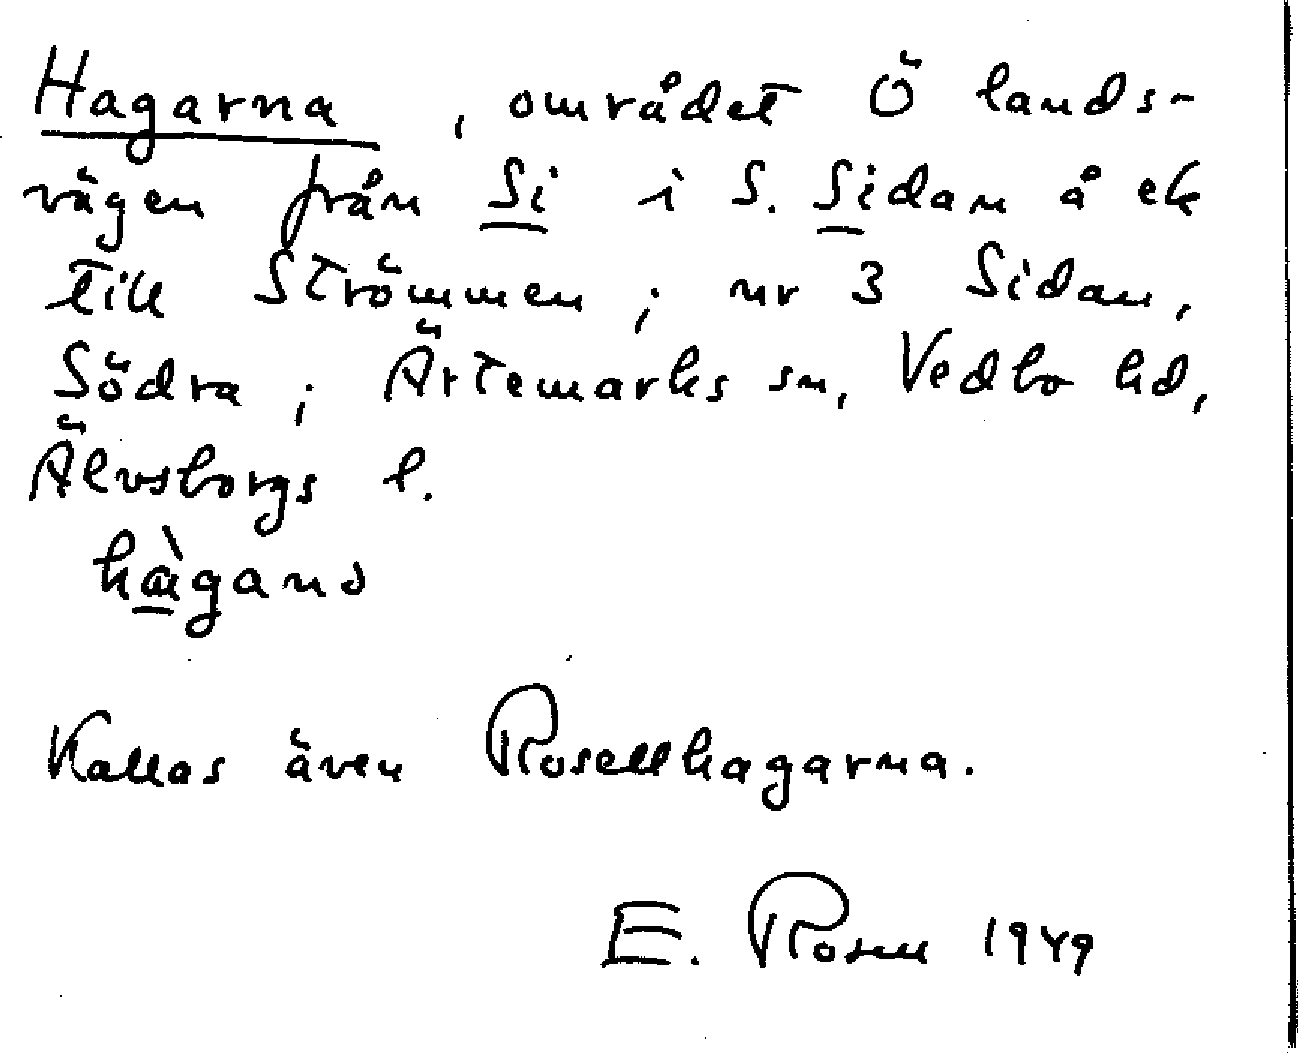 Hagarna, området Ö lands-
vägen från Si i S. Sidan å ek
till Strömmen; nr 3 Sidan,
Södra; Ärtemarks sn, Vedbo hd,
Älvsborgs l.
hàganɔ
Kallas även Rosellhagarna.
E. Rosen 1949